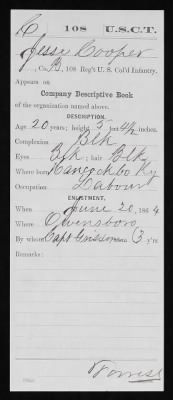 C 108 U.S.C.T.
Jesse Cooper
, Co. B, 108 Reg't U. S. Col'd Infantry.
Appears on
Company Descriptive Book
of the organization named above.
DESCRIPTION.
Age 20 years; height 5 feet 4½ inches.
Complexion Blk
Eyes Blk; hair Blk
Where born Ky
Occupation Labour
ENLISTMENT.
When June 20, 1864
Where Owensboro
By whom Capt Grissom; term 3 y'rs.
Remarks:
Forrest